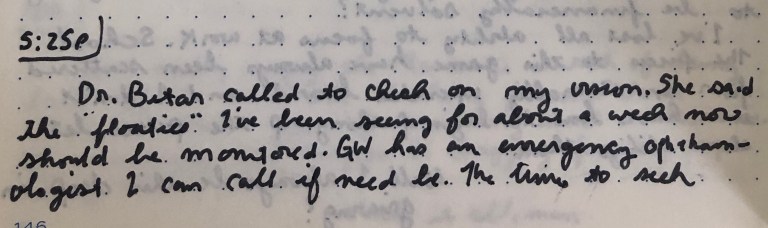 5:25p
Dr. Butar called to check on my vision. She said
the "floaties" I've been seeing for about a week now
should be monitored. GW has an emergency ophtham-
ologist I can call if need be. The time to seek.
146